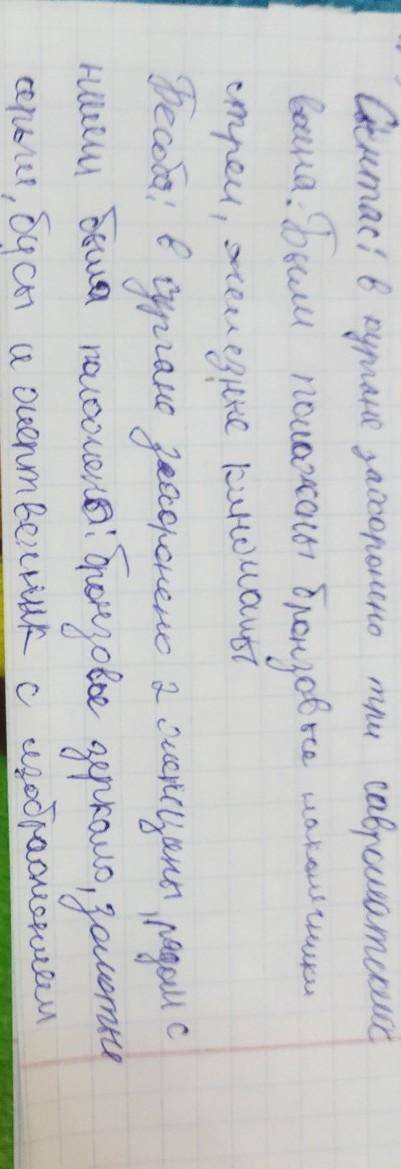 Сынтас: в кургане захоронено три савроматских
воина. Были положены бронзовые наконечники
стрел, железные кинжалы
Бесоба: в кургане захоронено 2 женщины, рядом с
ними была положены: бронзовое зеркало, золотые
серьги, бусы и жертвенник с изображением